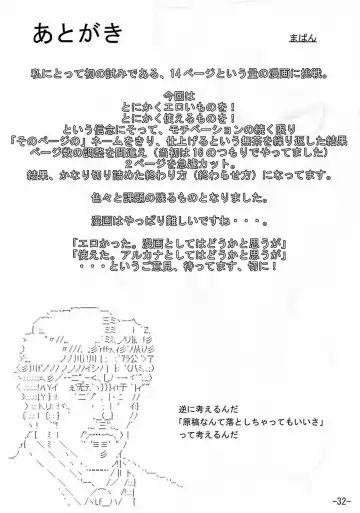 あとがき
まばん
私にとって初の試みである、14ページという量の漫画に挑戦。
今回は
とにかくエロいものを!
とにかく使えるものを!
という信念にそって、モチベーションの続く限り
「そのページの」ネームをきり、仕上げるという無茶を繰り返した結果
ページ数の調整を間違え（当初は16のつもりでやってました）
2ページを急遽カット。
結果、かなり切り詰めた終わり方（終わらせ方）になってます。
色々と課題の残るものとなりました。
漫画はやっぱり難しいですね・・・。
「エロかった。漫画としてはどうかと思うが」
「使えた。アルカナとしてはどうかと思うが」
・・・というご意見、待ってます、切に!
逆に考えるんだ
「原稿なんて落としちゃってもいいさ」
って考えるんだ
-32-